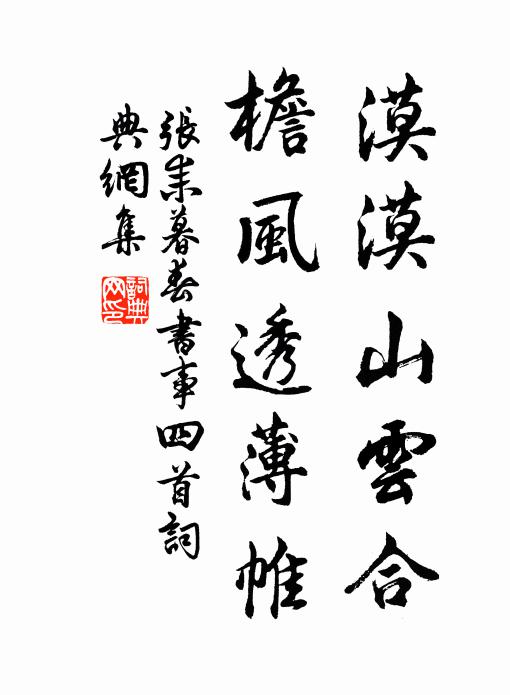 漠漠山雲合
檐風透薄帷
張耒暮春書事四首詞
典網集
詞典
网印